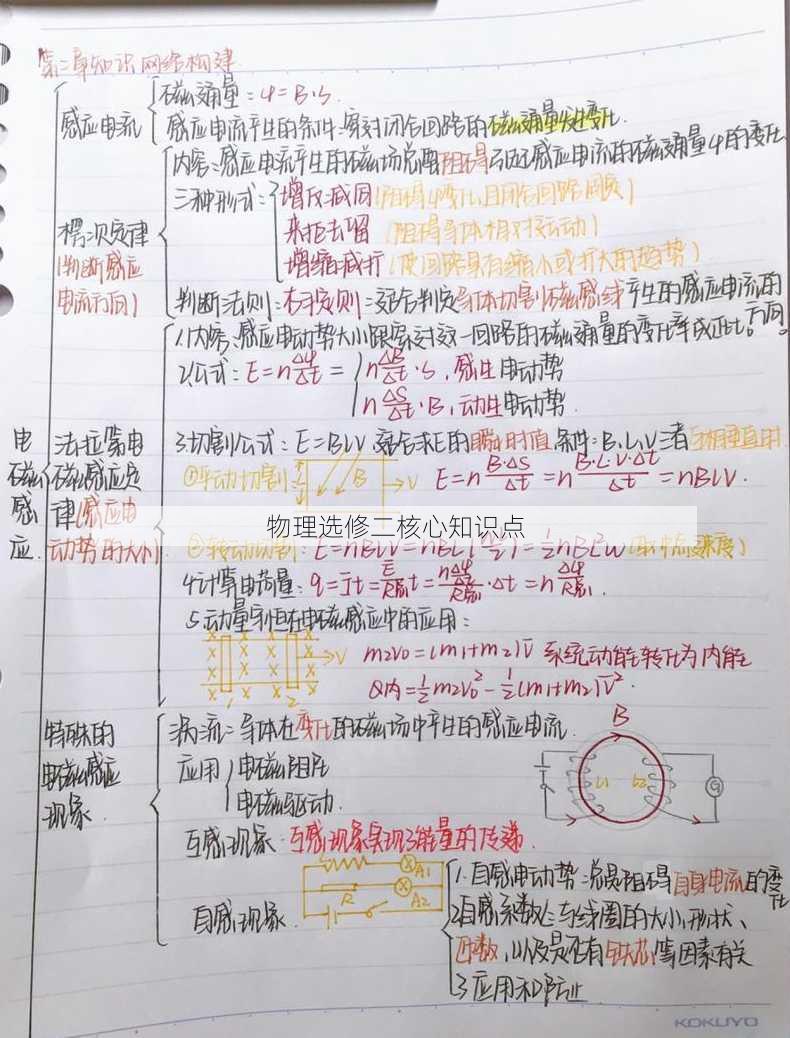 第二章知识网络构建
感应电流
磁通量：φ=B·S.
感应电流产生的条件：穿过闭合回路的磁通量发生变化.
楞次定律
(判断感应
电流方向)
内容：感应电流产生的磁场总要阻碍引起感应电流的磁通量φ的变化
三种形式：
增反减同(阻碍φ变化且闭合回路阻碍)
来拒去留(阻碍导体相对运动)
增缩减扩(使回路具有缩小或扩大的趋势)
判断法则：右手定则：适合判定导体切割磁感线产生的感应电流的方向
电磁感应.
法拉第电
磁感应定
律(感应电
动势的大小)
1.内容：感应电动势大小跟穿过这一回路的磁通量的变化率成正比.
2.公式：E=nΔφ/Δt=
nΔB/Δt·S,感生电动势
nΔS/Δt·B,动生电动势.
3.切割公式：E=BLV 适合求E的瞬时值 条件：B.L.V三者互相垂直时
①平动切割 L B →V E=nB·ΔS/Δt=nB·L·V·Δt/Δt=nBLV.
物理选修二核心知识点
②转动切割：E=nBLV=nBL(ωL/2)=½nBL²ω(取中点速度)
4.计算电荷量：q=It=E/R总t=nΔφ/Δt/R总·Δt=nΔφ/R总.
5.动量守恒在电磁感应中的应用：
1 2 →V
m₂v₀=(m₁+m₂)v 系统动能转化为内能
Q内=½m₂v₀²-½(m₁+m₂)v².
特殊的
电磁感应
现象.
涡流：导体在变化的磁场中产生的感应电流.
应用
电磁阻尼
电磁驱动.
B
L1 L2 G
互感现象：互感现象实现了能量的传递.
自感现象.
A1
R A2
1.自感电动势：总是阻碍自身电流的变化
2.自感系数L：与线圈的大小、形状、
匝数,以及是否有铁芯等因素有关
3.应用和防止
KOKUYO